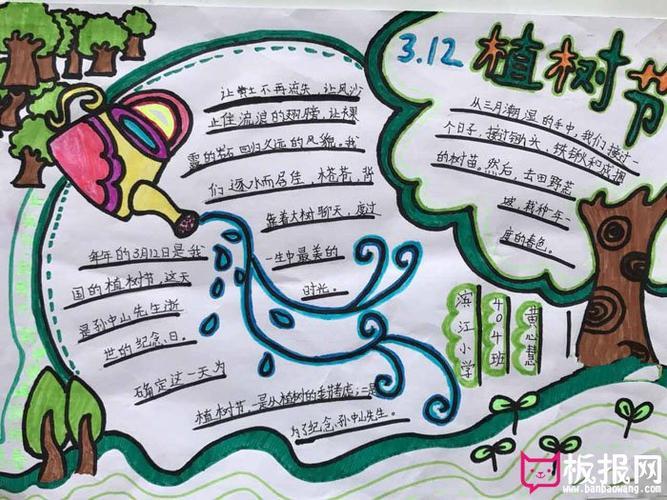 3.12 植树节
让黄土不再流失，让风沙
止住流浪的翅膀，让裸
露的岩石回归久远的风貌。我
们逐水而居住，搭茬，背
靠着大树聊天，度过
一生中最美的
时光。
从三月潮湿的手中，我们接过一
个日子，接过锄头、铁锹和成捆
的树苗。然后，去田野荒
坡，栽种一年一
度的春色。
每年的3月12日是我
国的植树节，这天
是孙中山先生逝
世的纪念日。
确定这一天为
植树节，一是从植树的季节考虑；二是
为了纪念孙中山先生。
滨江小学
404班
黄心慧
板报网
www.banbaowang.com